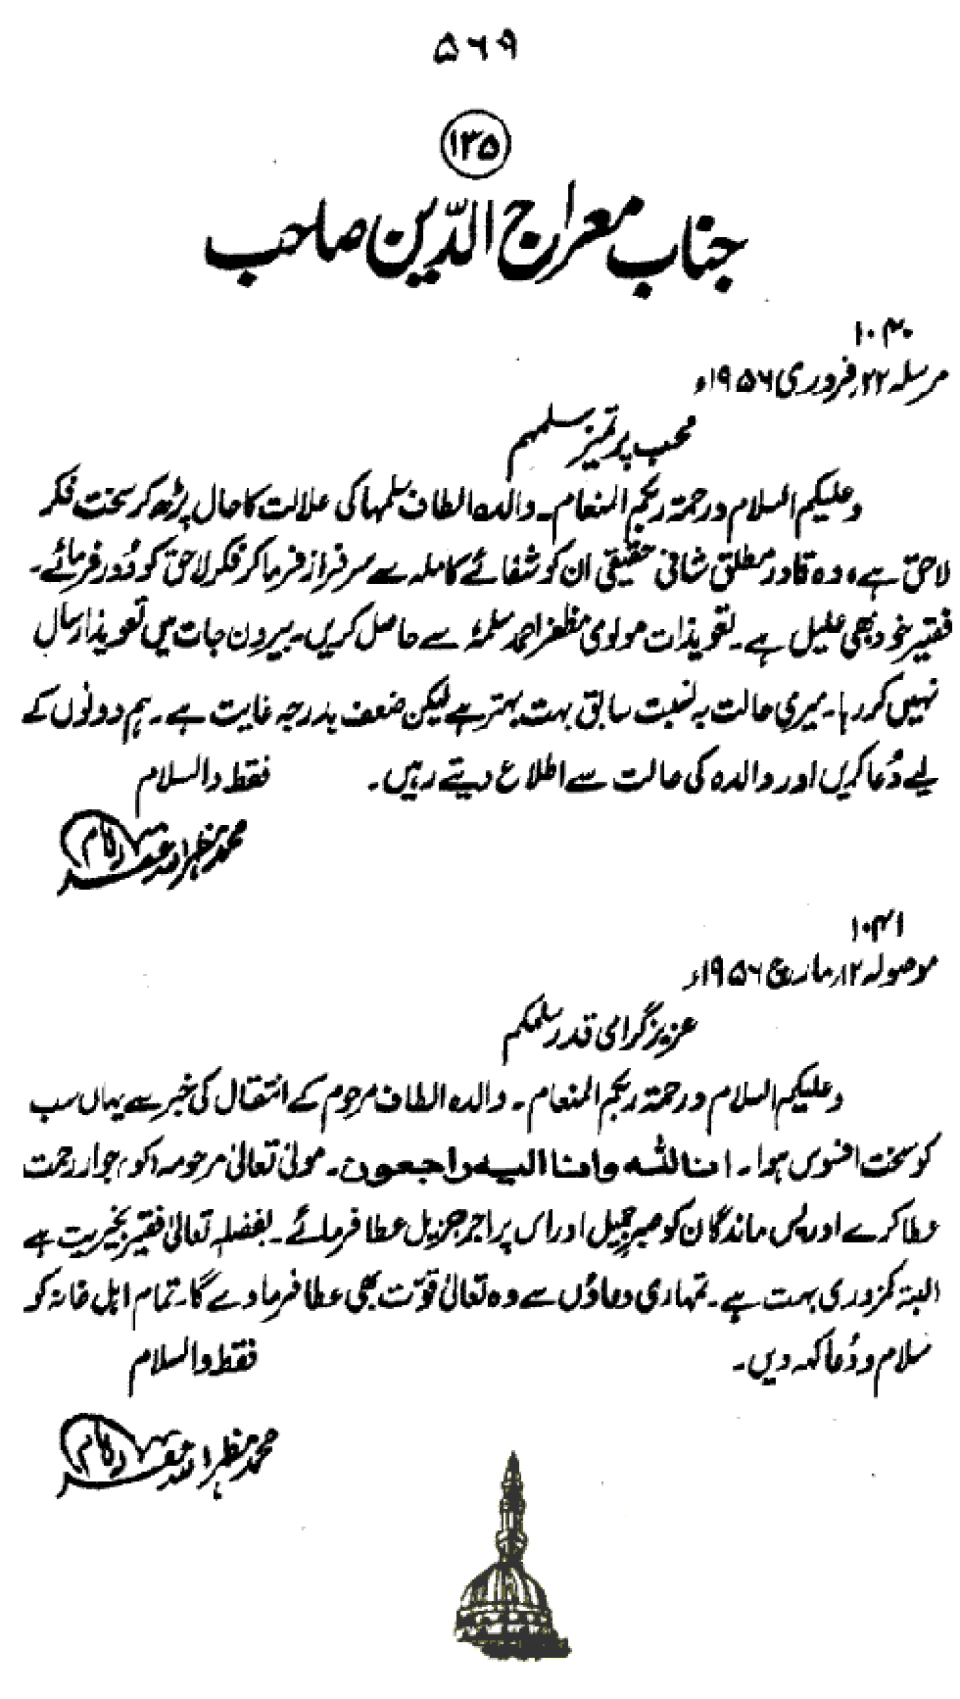 ۵۶۹
۱۳۵
جناب معراج الدّین صاحب
۱۰۴۰
مرسلہ ۲۲؍ فروری ۱۹۵۶ء
محب پر تمیز سلمہم
وعلیکم السلام ورحمۃ ربکم المنعام۔ والدہ الطاف سلمہا کی علالت کا حال پڑھ کر سخت فکر
لاحق ہے، وہ قادر مطلق شافی حقیقی ان کو شفائے کاملہ سے سرفراز فرما کر فکر لاحق کو دُور فرمائے۔
فقیر خود بھی علیل ہے۔ تعویذات مولوی مظفر احمد سلمہٗ سے حاصل کریں۔ بیرون جات میں تعویذ ارسال
نہیں کر رہا۔ میری حالت بہ نسبت سابق بہت بہتر ہے لیکن ضعف بدرجہ غایت ہے۔ ہم دونوں کے
لیے دُعا کریں اور والدہ کی حالت سے اطلاع دیتے رہیں۔ فقط والسلام
محمد مظہر اللہ
۱۰۴۱
موصولہ ۱۲؍ مارچ ۱۹۵۶ء
عزیز گرامی قدر سلمکم
وعلیکم السلام ورحمۃ ربکم المنعام۔ والدہ الطاف مرحوم کے انتقال کی خبر سے یہاں سب
کو سخت افسوس ہوا۔ انا للہ وانا الیہ راجعون۔ مولیٰ تعالیٰ مرحومہ کو جوار رحمت
عطا کرے اور پس ماندگان کو صبر جمیل اور اس پر اجر جزیل عطا فرمائے۔ بفضلہ تعالیٰ فقیر بخیریت ہے
البتہ کمزوری بہت ہے۔ تمہاری دعاؤں سے وہ تعالیٰ قوّت بھی عطا فرما دے گا۔ تمام اہل خانہ کو
سلام و دُعا کہہ دیں۔ فقط والسلام
محمد مظہر اللہ